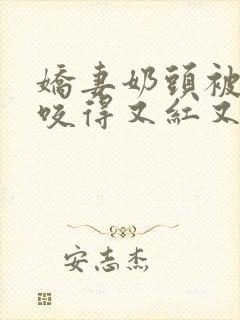 嬌妻奶頭被
咬得又紅又
安志杰